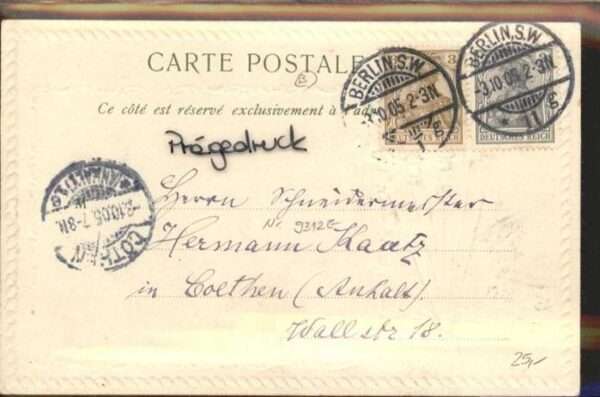 CARTE POSTALE
Ce côté est réservé exclusivement à l'adr
Prägedruck
BERLIN, S.W.
-3.10.05.2-3N.
11 g
BERLIN, S.W.
-3.10.05.2-3N.
11 g
3
DEUTSCHES REICH
DEUTSCHES REICH
CÖTHEN
(ANHALT)
3.10.05.7-8N.
Herrn Schneidermeister
Nr. 9312E
Hermann Kaatz
in Coethen (Anhalt).
Wallstr 18.
25,-